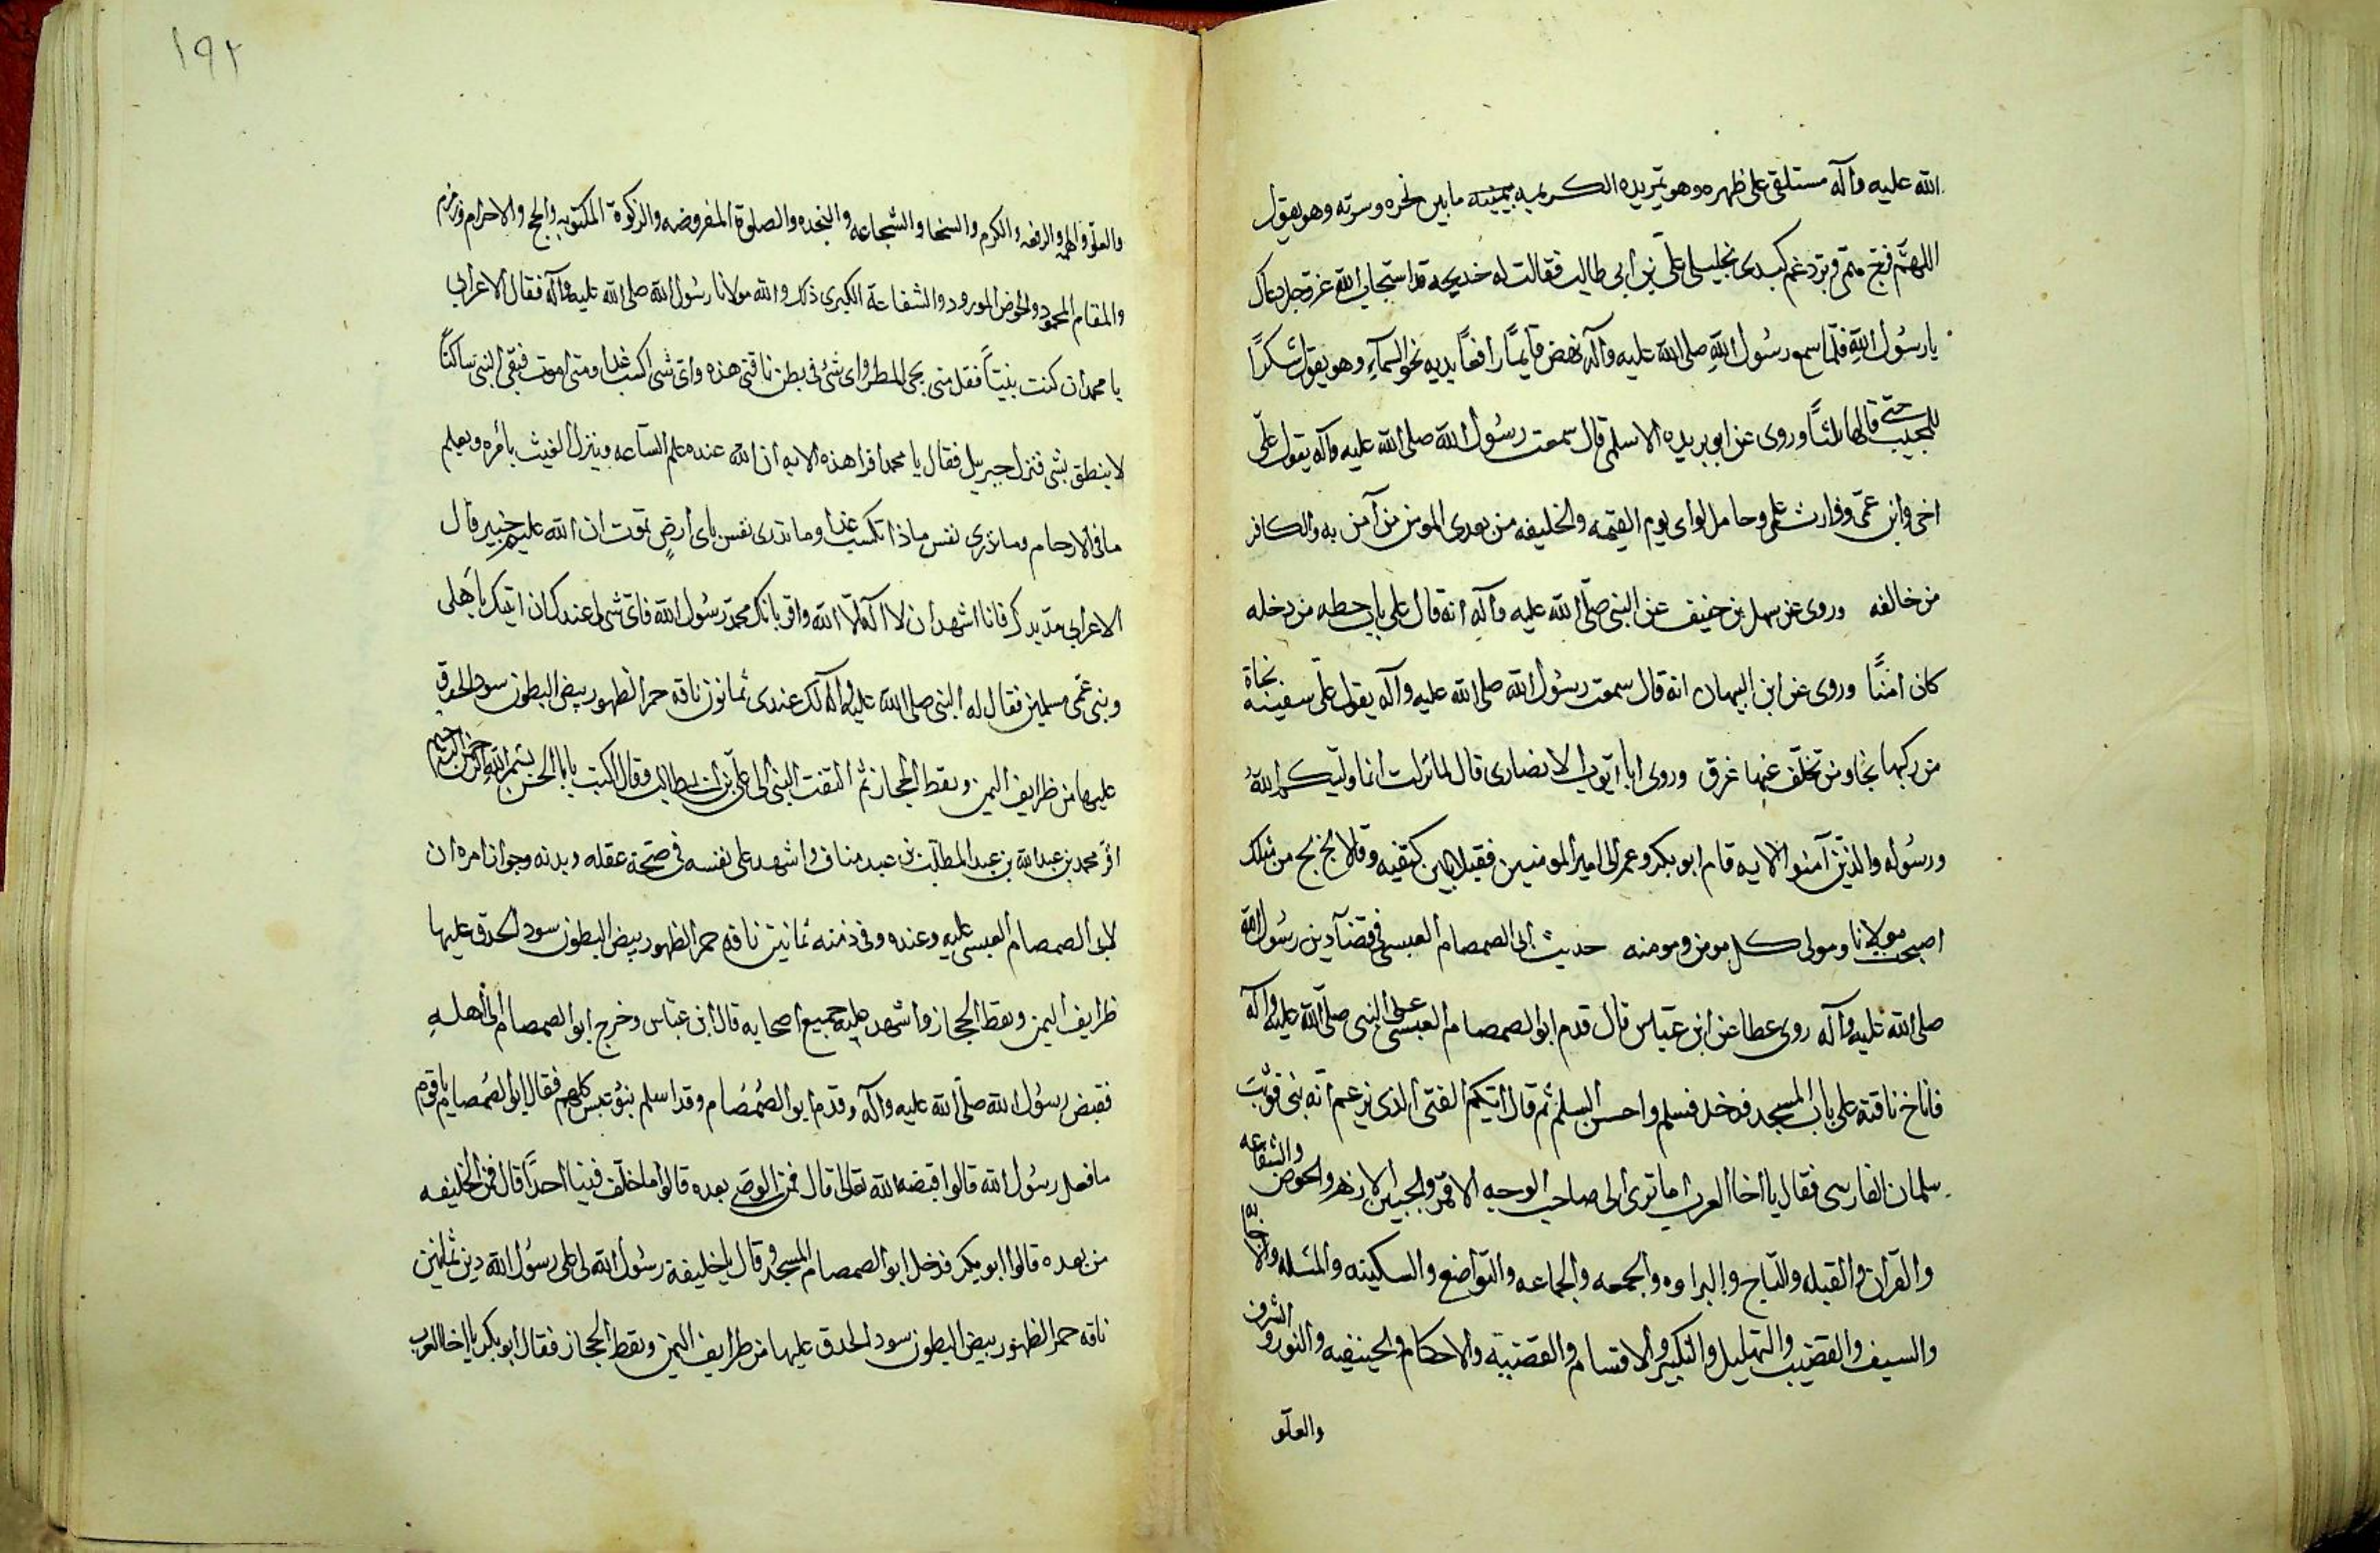 الله عليه وآله مستلقى على ظهره وهو تمر يده الكريمه بيمينه ما بين نحره وسرته وهو يقول
اللهم فرج همى وبرد غم كبدى بخليلى على بن ابى طالب فقالت له خديجه قد استجاب الله عز وجل دعاك
يا رسول الله فلما سمع رسول الله صلى الله عليه وآله نهض قايما رافعا يديه نحو السمآء وهو يقول شكرا
للمجيب حتى قالها ثلثا وروى عن ابو بريده الاسلمى قال سمعت رسول الله صلى الله عليه وآله يقول على
اخى وابن عمى ووارث علمى وحامل لواى يوم القيمه والخليفه من بعدى المومن من آمن به والكافر
من خالفه وروى عن سهل بن حنيف عن النبى صلى الله عليه وآله انه قال على باب حطه من دخله
كان امنا وروى عن ابن اليهان انه قال سمعت رسول الله صلى الله عليه وآله يقول على سفينة نجاة
من ركبها نجا ومن تخلف عنها غرق وروى ابا ايوب الانصارى قال لما نزلت انما وليكم الله
ورسوله والذين آمنوا الايه قام ابو بكر وعمر الى امير المومنين فقبلا بين كتفيه وقالا بخ بخ من مثلك
اصبحت مولانا ومولى كل مومن ومومنه حديث ابى الصمصام العبسى فى قضآ دين رسول الله
صلى الله عليه وآله روى عطا عن ابن عباس قال قدم ابو الصمصام العبسى على النبى صلى الله عليه وآله
فاناخ ناقته على باب المسجد فدخل فسلم واحسن السلم ثم قال ايكم الفتى الذى يزعم انه نبى فوثب
سلمان الفارسى فقال يا اخا العرب اما ترى الى صاحب الوجه الاقمر والجبين الازهر والحوض والشفاعه
والقرآن والقبله والتاج والبراوه والجمعه والجماعه والتواضع والسكينه والمسئله والاجابه
والسيف والقضيب والتهليل والتكبير والاقسام والقضيه والاحكام والحنيفيه والنور والشرف
والعلو
١٩٢
والعلو والهمه والرفعه والكرم والسخا والشجاعه والنجده والصلوة المفروضه والزكوة المكتوبه والحج والاحرام وزمزم
والمقام المحمود والحوض المورود والشفاعة الكبرى ذلك والله مولانا رسول الله صلى الله عليه وآله فقال الاعرابى
يا محمد ان كنت نبيا فقل متى يجى المطر واى شئ فى بطن ناقتى هذه واى شى اكسب غدا ومتى اموت فبقى النبى ساكتا
لا ينطق بشى فنزل جبريل فقال يا محمد اقرا هذه الايه ان الله عنده علم الساعه وينزل الغيث بامره ويعلم
ما فى الارحام وما تدرى نفس ماذا تكسب غدا وما تدرى نفس باى ارض تموت ان الله عليم خبير قال
الاعرابى مد يدك فانا اشهد ان لا اله الا الله واقر بانك محمد رسول الله فاى شى لى عندك ان اتيك باهلى
وبنى عمى مسلمين فقال له النبى صلى الله عليه وآله لك عندى ثمانون ناقه حمر الظهور بيض البطون سود الحدق
عليها من ظرايف اليمن ونقط الحجاز ثم التفت النبى الى على بن ابى طالب وقال اكتب يا ابا الحسن بسم الله الرحمن الرحيم
اقر محمد بن عبد الله بن عبد المطلب بن عبد مناف واشهد على نفسه فى صحة عقله وبدنه وجواز امره ان
لابى الصمصام العبسى عليه وعنده وفى ذمته ثمانين ناقه حمر الظهور بيض البطون سود الحدق عليها
ظرايف اليمن ونقط الحجاز واشهد عليه جميع اصحابه قال ابن عباس وخرج ابو الصمصام الى اهله
فقبض رسول الله صلى الله عليه وآله وقدم ابو الصمصام وقد اسلم بنو عبس كلهم فقال ابو الصمصام يا قوم
ما فعل رسول الله قالوا قبضه الله تعالى قال فمن الوصى بعده قالوا ما خلف فينا احدا قال فمن الخليفه
من بعده قالوا ابو بكر فدخل ابو الصمصام المسجد وقال يا خليفة رسول الله لى على رسول الله دين ثمانين
ناقه حمر الظهور بيض البطون سود الحدق عليها من ظرايف اليمن ونقط الحجاز فقال ابو بكر يا اخا العرب